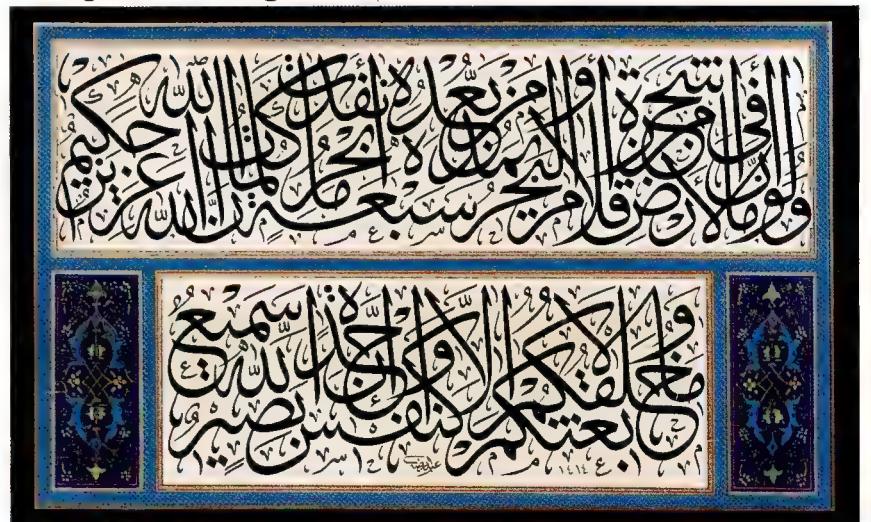 ولو أنما في الأرض من شجرة أقلام والبحر يمده من بعده سبعة أبحر ما نفدت كلمات الله إن الله عزيز حكيم
ما خلقكم ولا بعثكم إلا كنفس واحدة إن الله سميع بصير
١٤١٤